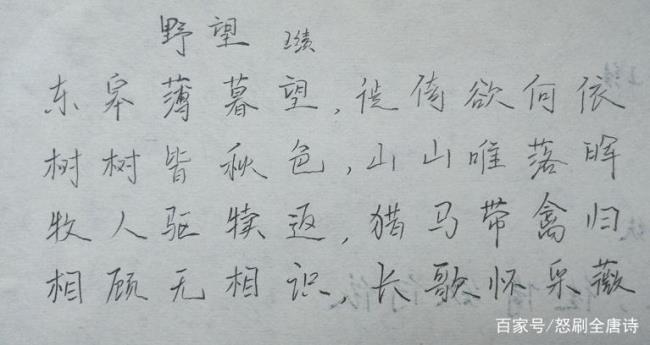 野望 王绩
东皋薄暮望，徙倚欲何依
树树皆秋色，山山唯落晖
牧人驱犊返，猎马带禽归
相顾无相识，长歌怀采薇
百家号/怒刷全唐诗